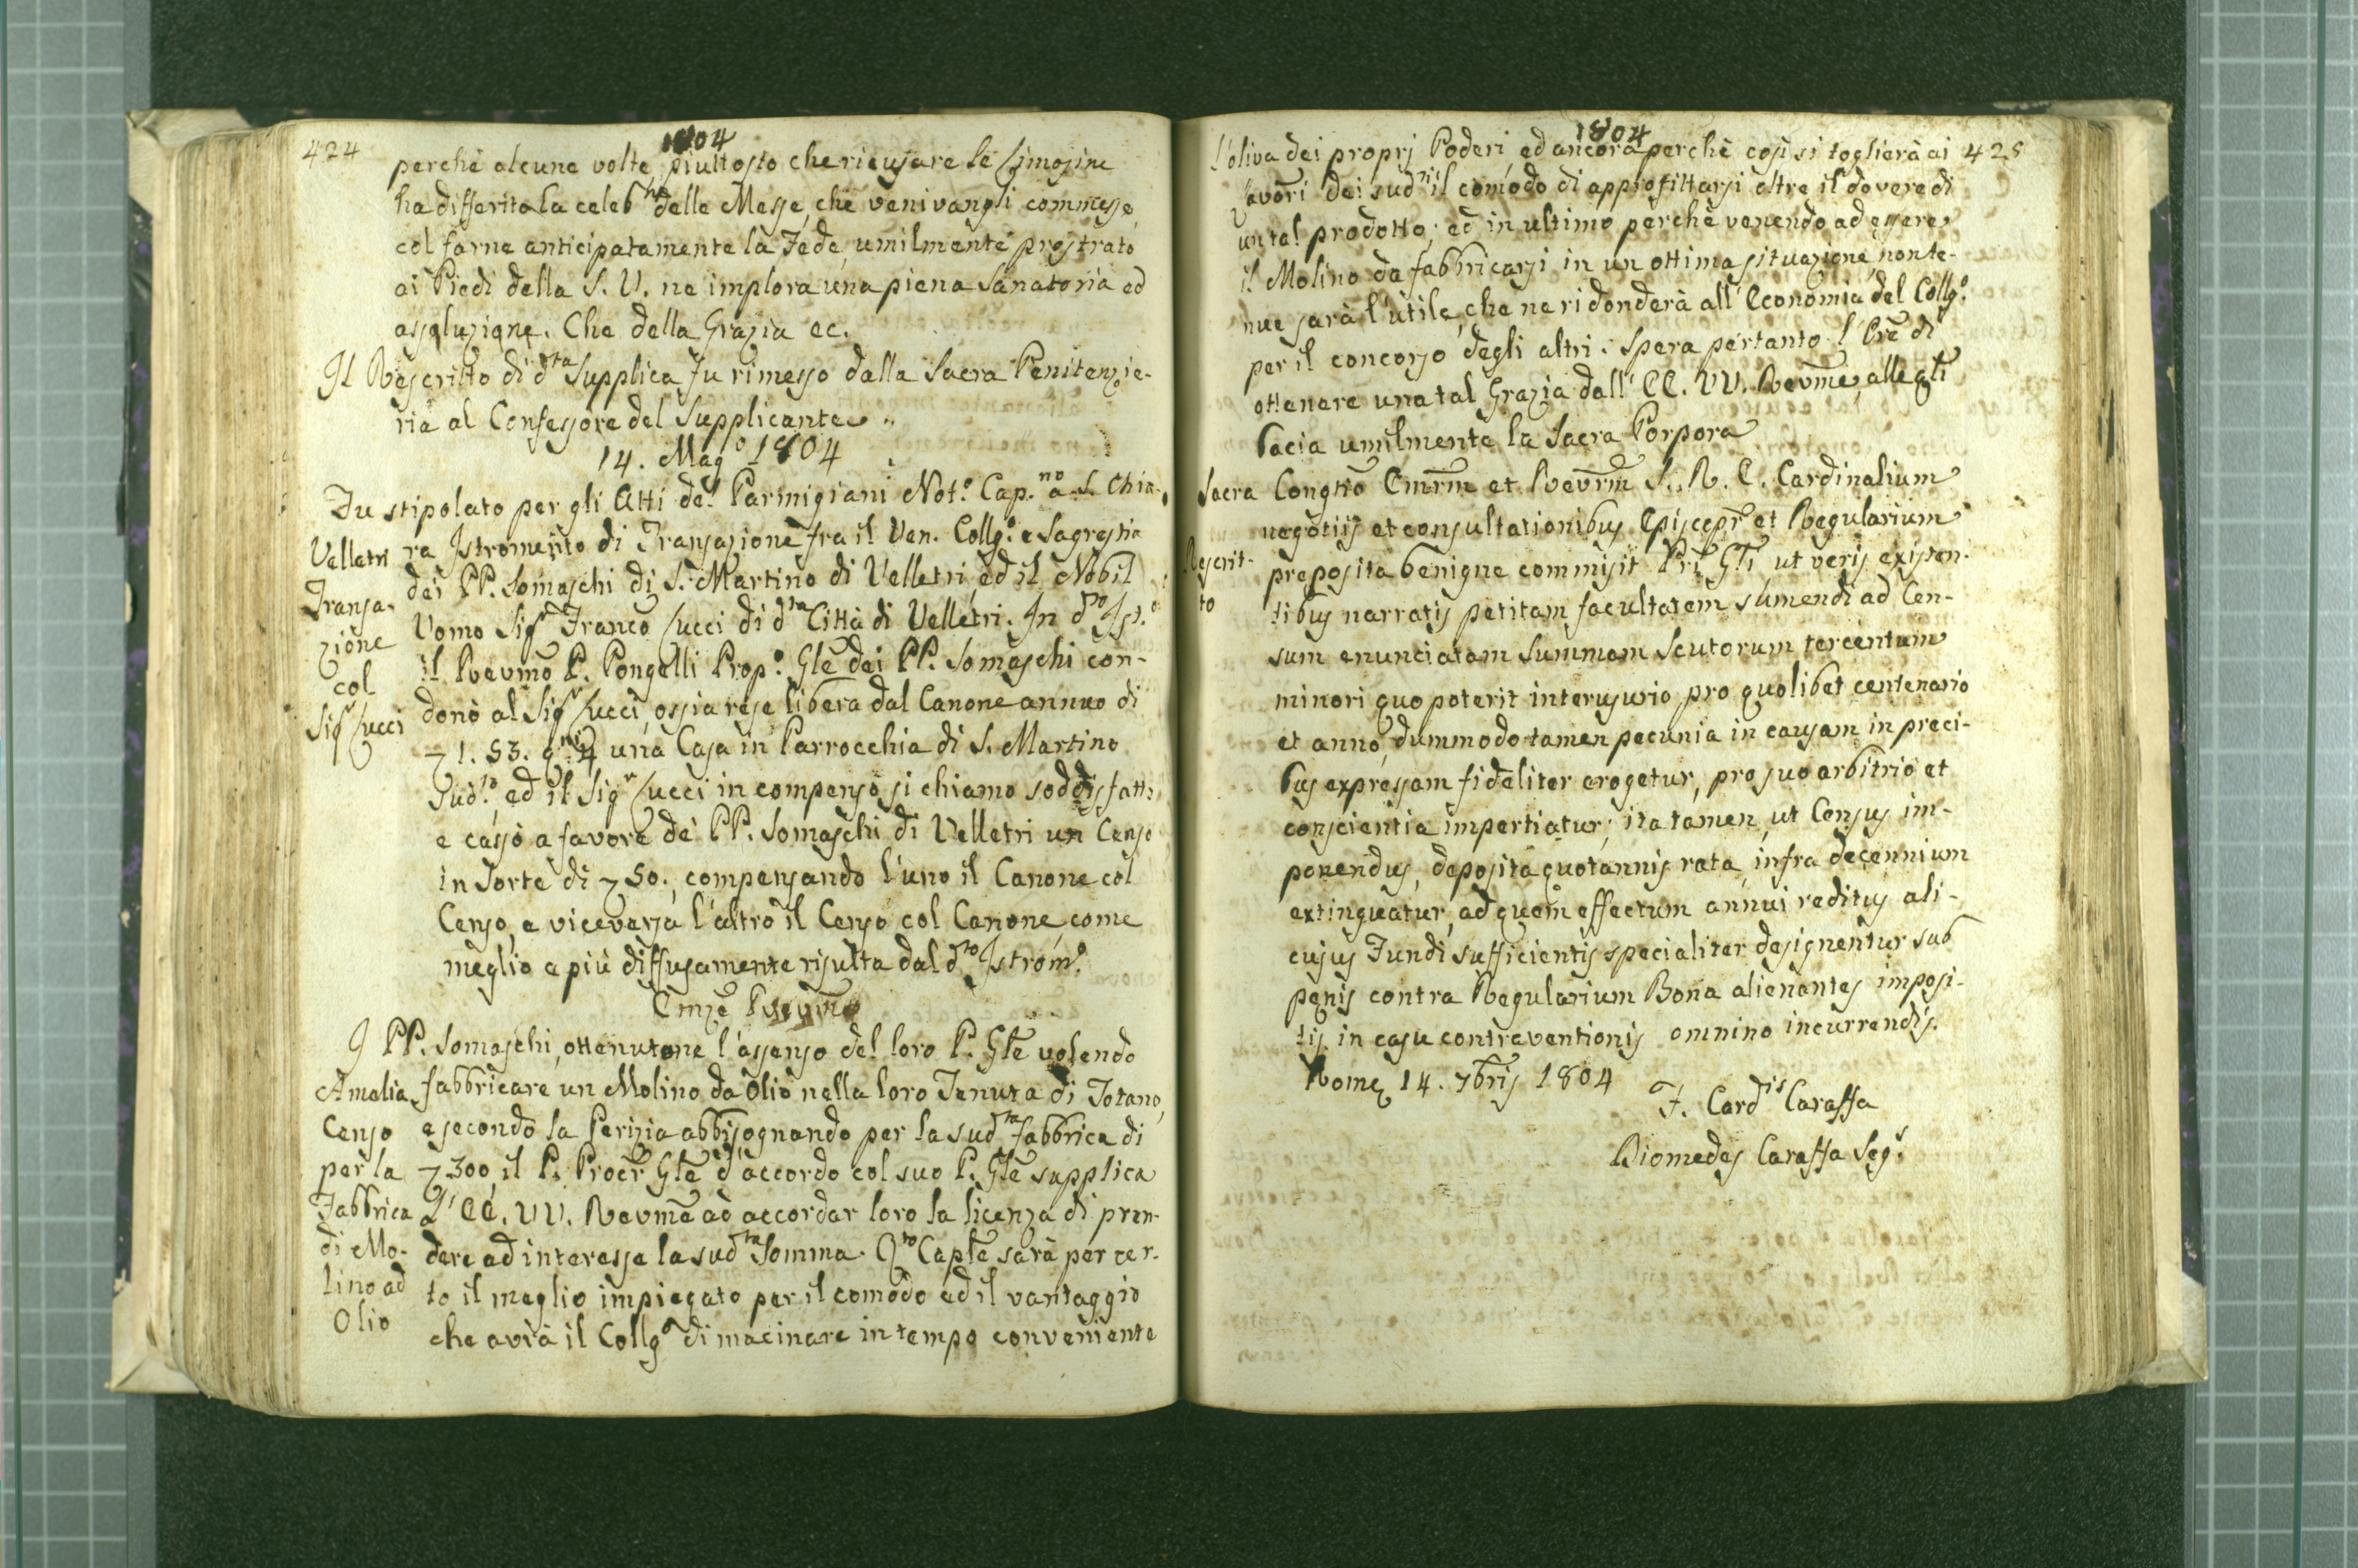 424
1804
perchè alcune volte, piuttosto che ricusare le Limosine
ha differito la celeb.ne delle Messe, che venivangli commesse,
col farne anticipatamente la Fede, umilmente prostrato
ai Piedi della S. V. ne implora una piena Sanatoria ed
assoluzione. Che della Grazia ec.
Il Rescritto di d.ta Supplica fu rimesso dalla Sacra Penitenzie-
ria al Confessore del Supplicante..
14. Mag.o 1804
Fu stipolato per gli Atti de' Parmigiani Not.o Cap.no a S. Chia-
Velletri
ra Istromento di Transazione fra il Ven. Collg.o e Sagrestia
dei PP. Somaschi di S. Martino di Velletri, ed il Nobil
Transa-
zione
col
Sig.r Lucci
Uomo Sig.r Franco Lucci di d.ta Città di Velletri. In d.to Ist.o
il Revmo P. Pongelli Prep.o Gle dei PP. Somaschi con-
donò al Sig.r Lucci, ossia rese libera dal Canone annuo di
1. 53. q.ni 4 una Casa in Parrocchia di S. Martino
Sud.o ed il Sig.r Lucci in compenso si chiamo soddisfatto
e cassò a favore de' PP. Somaschi di Velletri un Censo
in Sorte di 50., compensando l'uno il Canone col
Censo, e viceversa l'altro il Censo col Canone, come
meglio e più diffusamente risulta dal d.to Istrom.o
Emze Revme
I PP. Somaschi, ottenutone l'assenso del loro P. Gle volendo
Amelia
Censo
per la
Fabbrica
di Mo-
lino ad
Olio
fabbricare un Molino da Olio nella loro Tenuta di Totano,
e secondo la Perizia abbisognando per la sud.ta fabbrica di
300, il P. Procr Gle d'accordo col suo P. Gle supplica
l' EE. VV. Revme ad accordar loro la licenza di pren-
dere ad interesse la sud.ta Somma. Q.to Caple sarà per cer-
to il meglio impiegato per il comodo ed il vantaggio
che avrà il Collg.o di macinare in tempo conveniente
1804
425
l'oliva dei proprj Poderi, ed ancora perchè così si toglierà ai
Lavori dei sud.ni il comodo di approfittarsi oltre il dovere di
un tal prodotto; ed in ultimo perchè venendo ad essere
il Molino da fabbricarsi in un ottima situazione, non te-
nue sarà l'utile, che ne ridonderà all' Economia del Collg.o
per il concorso degli altri. Spera pertanto l' Ore di
ottenere una tal Grazia dall' EE. VV. Revme, alle qli
bacia umilmente la Sacra Porpora
Sacra Congtio Emrm et Revrm S. R. E. Cardinalium
negotiis et consultationibus Episcopr et Regularium
Rescrit-
to
preposita benigne commisit Pri Gli, ut veris existen-
tibus narratis petitam facultatem sumendi ad Cen-
sum enunciatam Summam Scutorum tercentum
minori quo poterit interusurio pro quolibet centenario
et anno, dummodo tamen pecunia in causam in preci-
bus expressam fideliter erogetur, pro suo arbitrio et
conscientia impertiatur; ita tamen, ut Census im-
ponendus, deposita quotannis rata, infra decennium
extinguatur, ad quem effectum annui reditus ali-
cujus Fundi sufficientis specialiter designentur sub
penis contra Regularium Bona alienantes imposi-
tis in casu contraventionis omnino incurrendis.
Rome 14. 7bris 1804
F. Card.is Caraffa
Diomedes Caraffa Seg.s